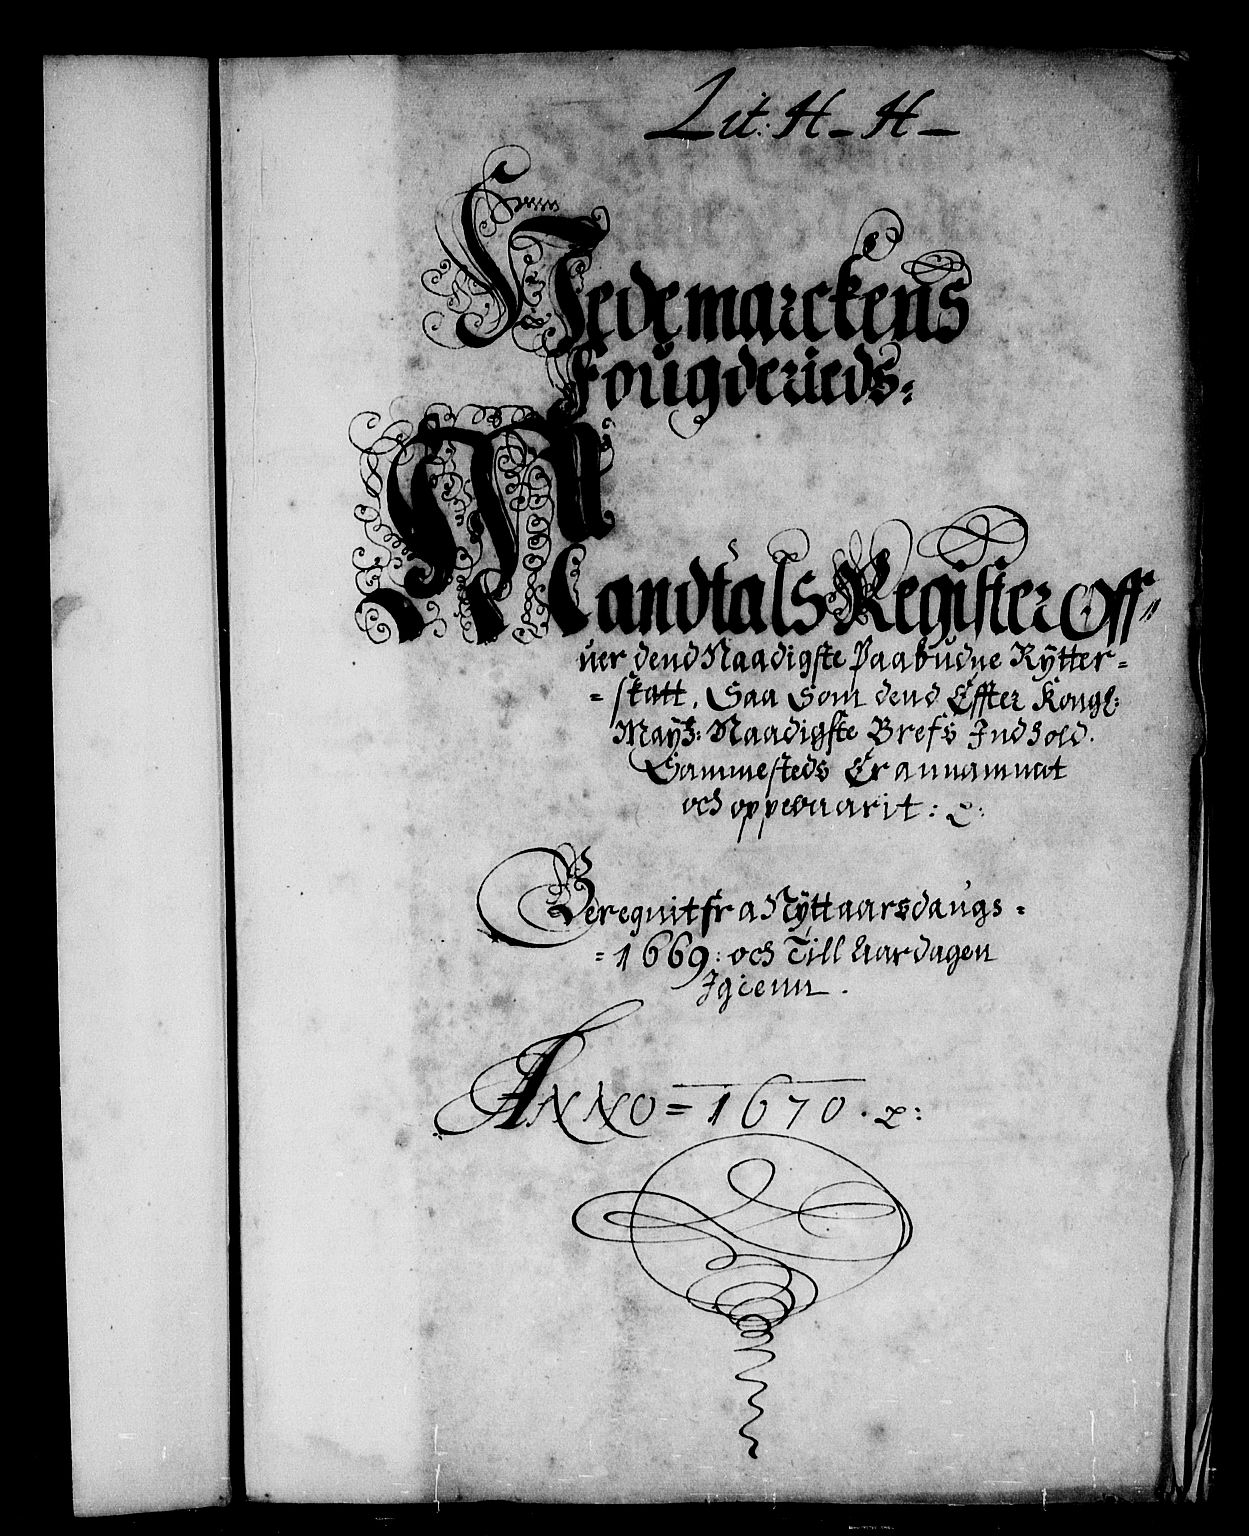 Lit: H - H -
Hedemarckens
Fougderieds:
Mandtals Register Off-
uer dend Naadigste Paabudne Rÿtter=
=skatt, Saa Som dend Effter Kongl:
Maÿtz: Naadigste Brefs Indhold.
Sammesteds Er annammet
och oppebaarit:
Beregnit fra Nÿttaarsdaugs =
= 1669: och Till Aardagen
Igienn.
ANNO = 1670.